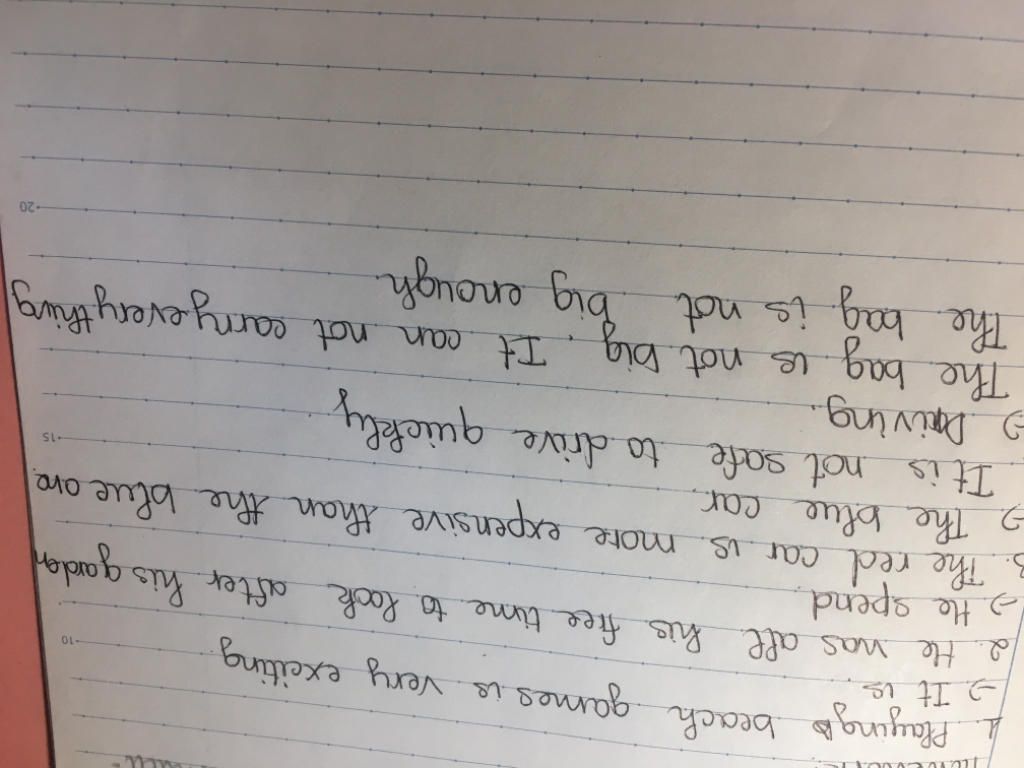 1. Playing beach games is very exciting
→ It is
2. He was all his free time to look after his garden
→ He spend
3. The red car is more expensive than the blue one.
→ The blue car
It is not safe to drive quickly
→ Driving.
The bag is not big. It can not carry everything
The bag is not big enough.
10
15
20